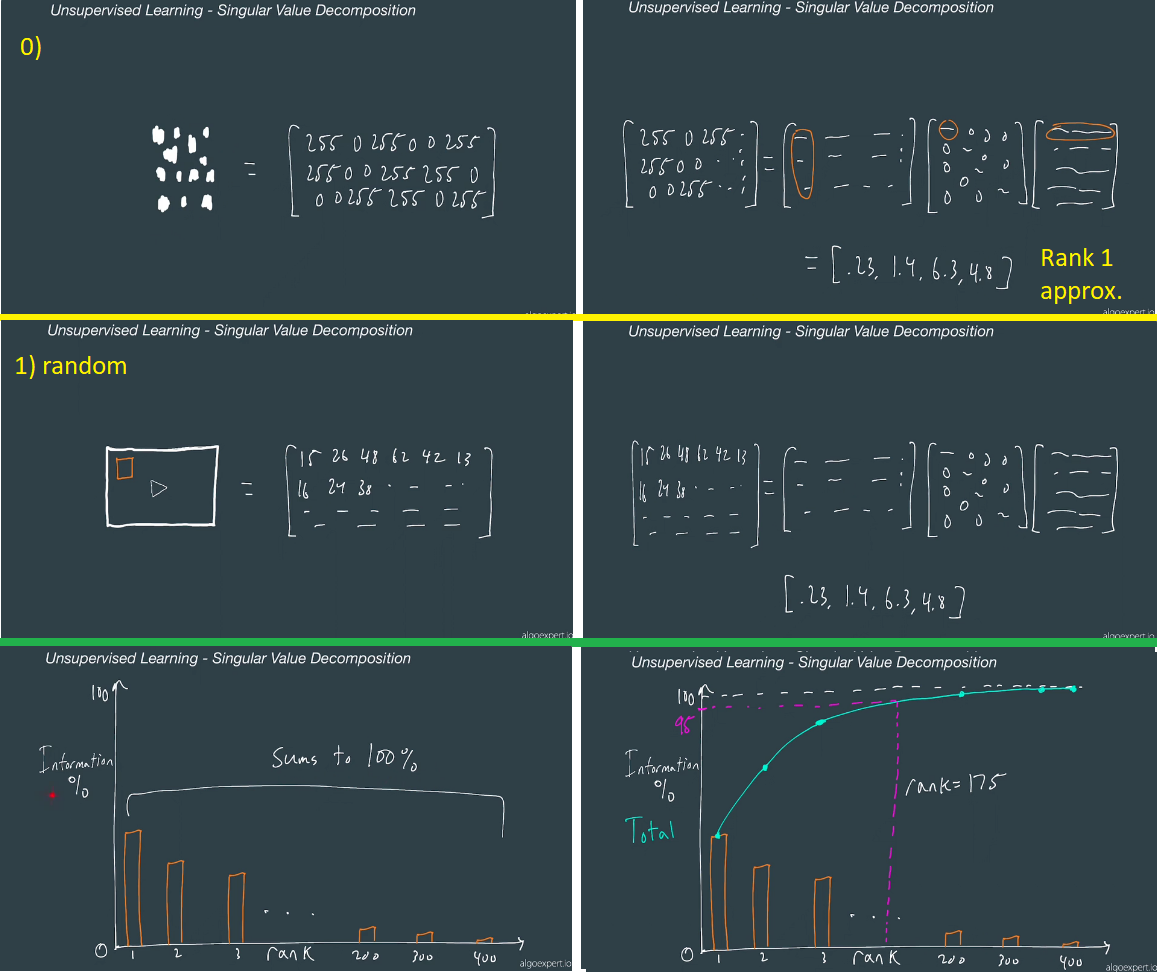 Unsupervised Learning - Singular Value Decomposition
0)
= [255 0 255 0 0 255
255 0 0 255 255 0
0 0 255 255 0 255]
Unsupervised Learning - Singular Value Decomposition
[255 0 255 :
255 0 0 . . :
0 0 255 . . :] =
= [.23, 1.4, 6.3, 4.8]
Rank 1
approx.
algoexpert.io
algoexpert.io
Unsupervised Learning - Singular Value Decomposition
1) random
= [15 26 48 62 42 13
16 24 38 . - - .
algoexpert.io
Unsupervised Learning - Singular Value Decomposition
[15 26 48 62 42 13
16 24 38 - - -
] =
[.23, 1.4, 6.3, 4.8]
algoexpert.io
Unsupervised Learning - Singular Value Decomposition
100
Information
%
Sums to 100%
0 1 2 3 rank 200 300 400
algoexpert.io
Unsupervised Learning - Singular Value Decomposition
100
95
Information
%
Total
rank=175
0 1 2 3 rank 200 300 400
algoexpert.io